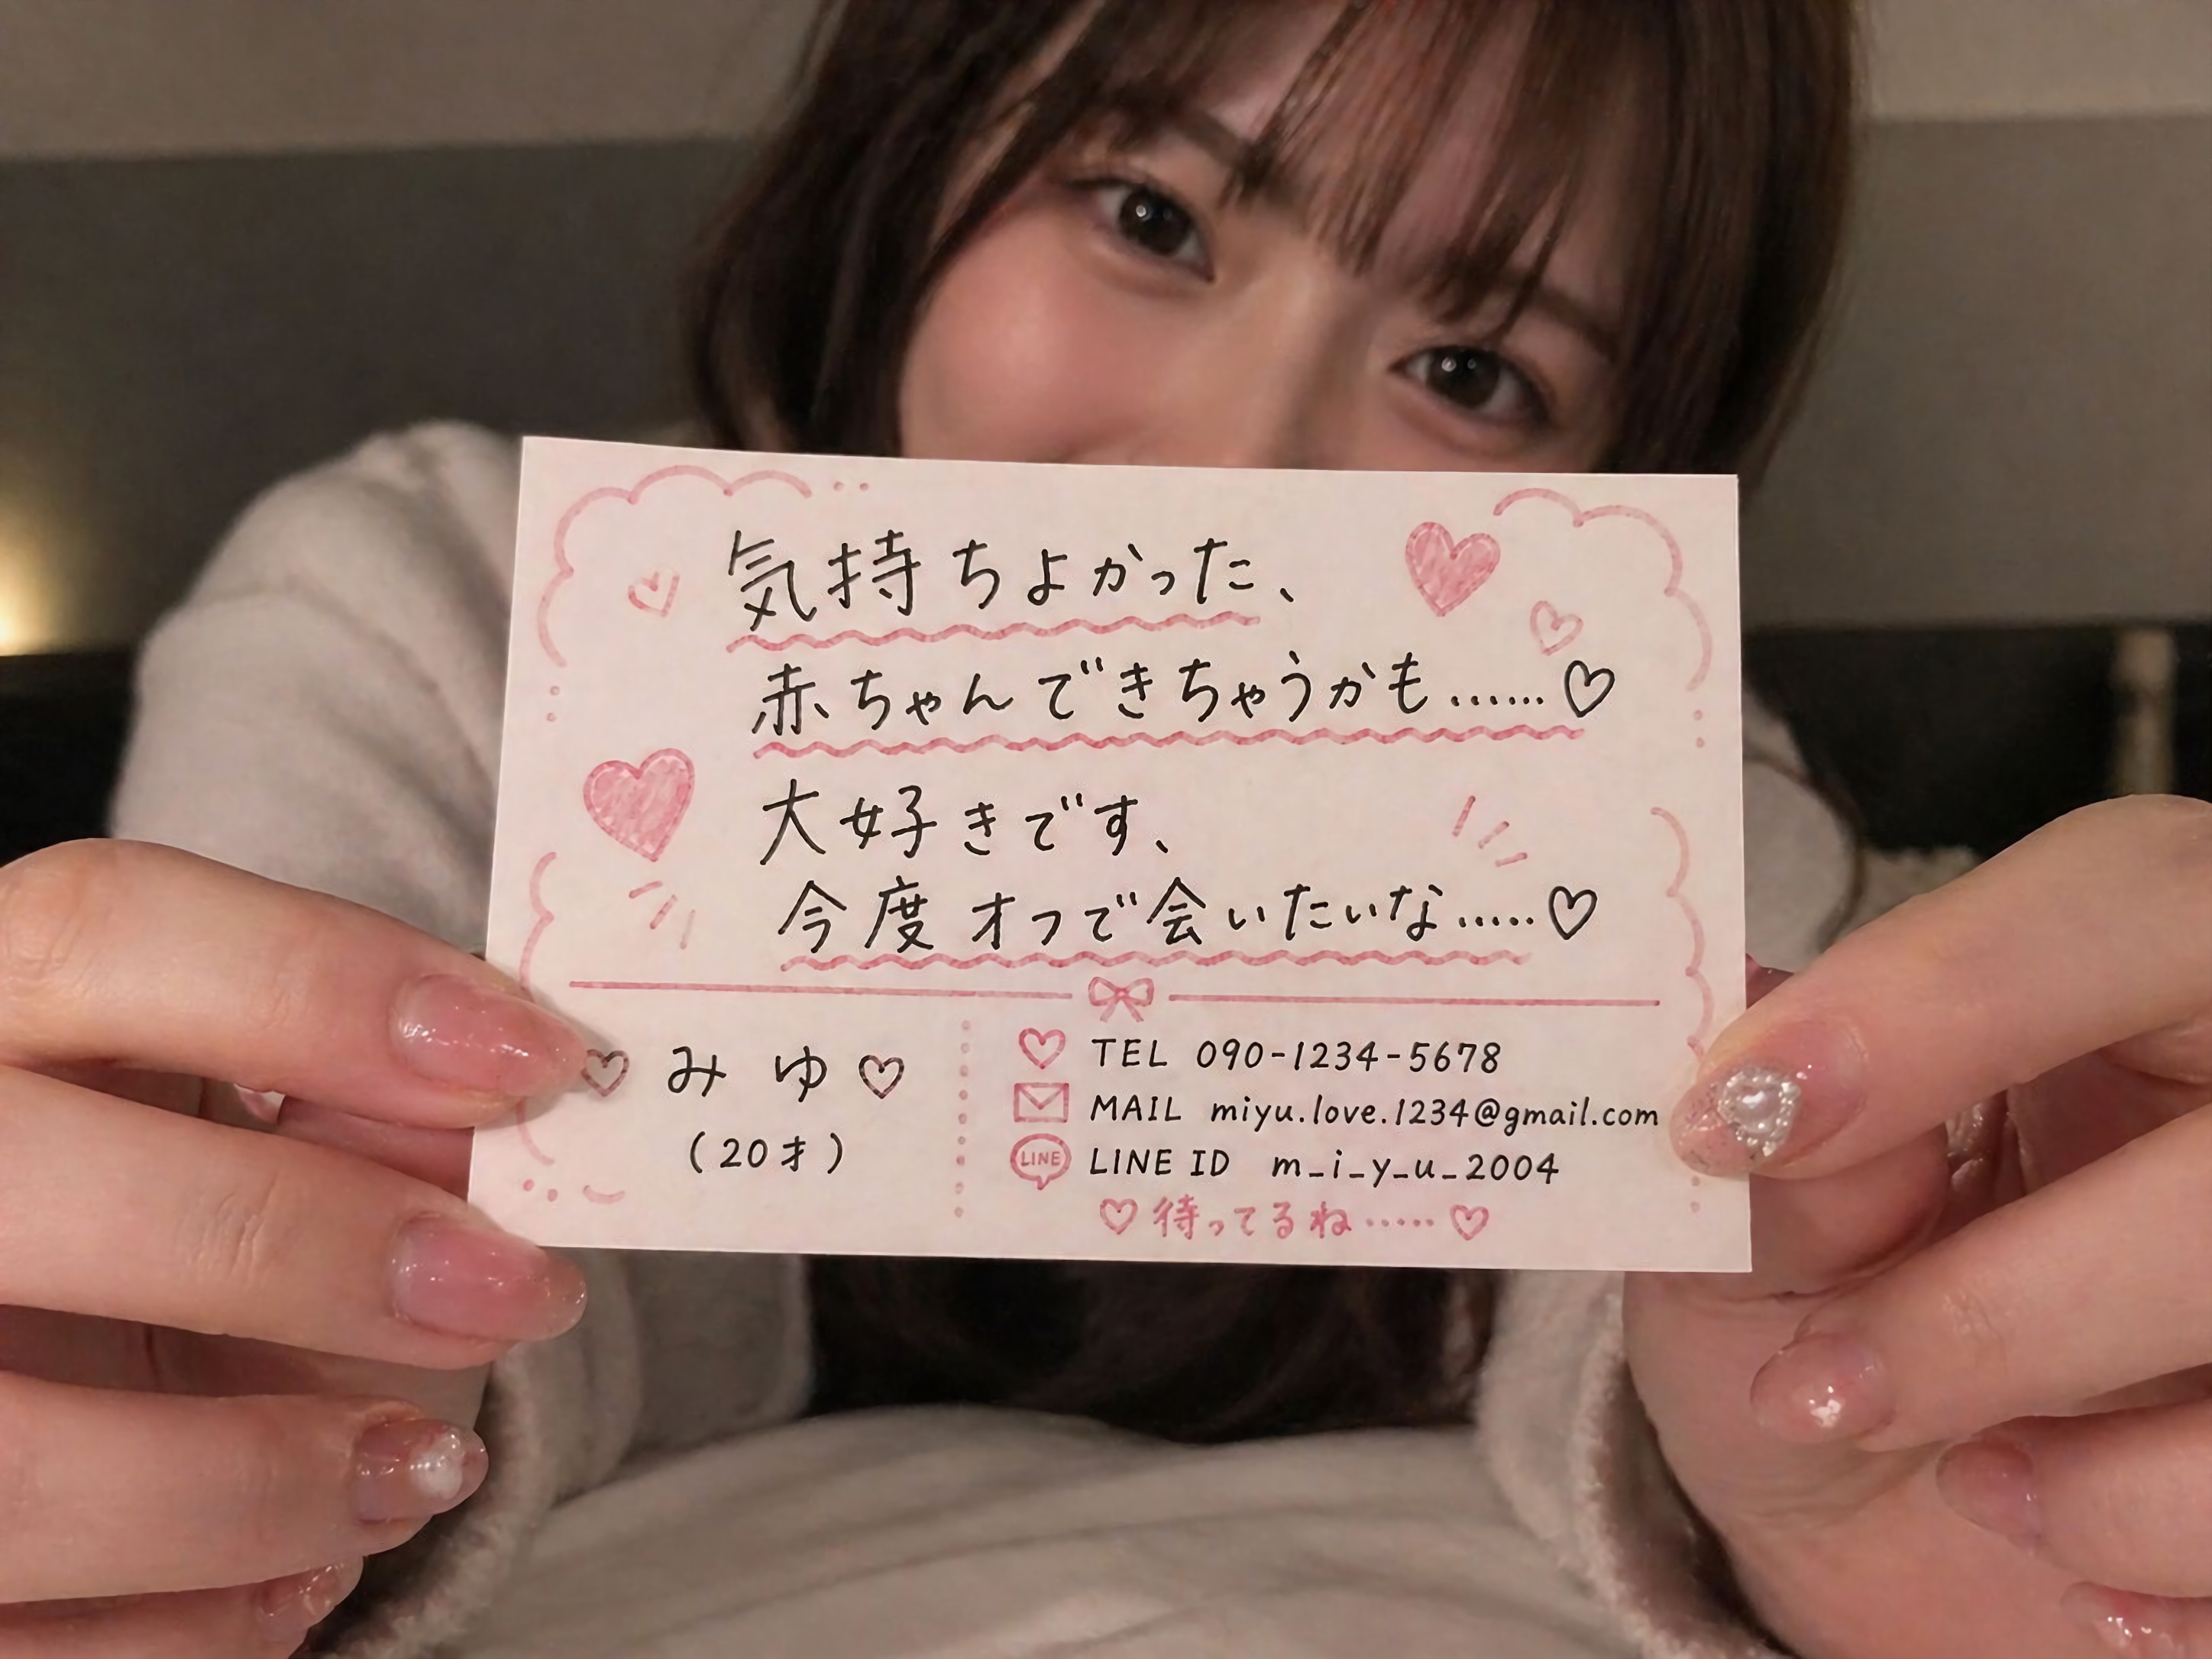 気持ちよかった、
赤ちゃんできちゃうかも……♡
大好きです、
今度オフで会いたいな……♡
♡ みゆ ♡
(20才)
TEL 090-1234-5678
MAIL miyu.love.1234@gmail.com
LINE LINE ID m_i_y_u_2004
♡待ってるね……♡